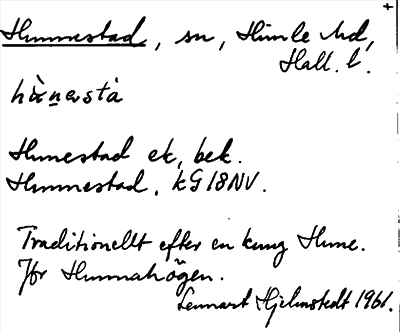 Hunnestad, sn, Himle hd,
Hall. l.
Hunestad ek, bek.
Hunnestad, kG 18NV.
Traditionellt efter en kung Hune.
Jfr Hunnahögen.
Lennart Hjelmstedt 1961.